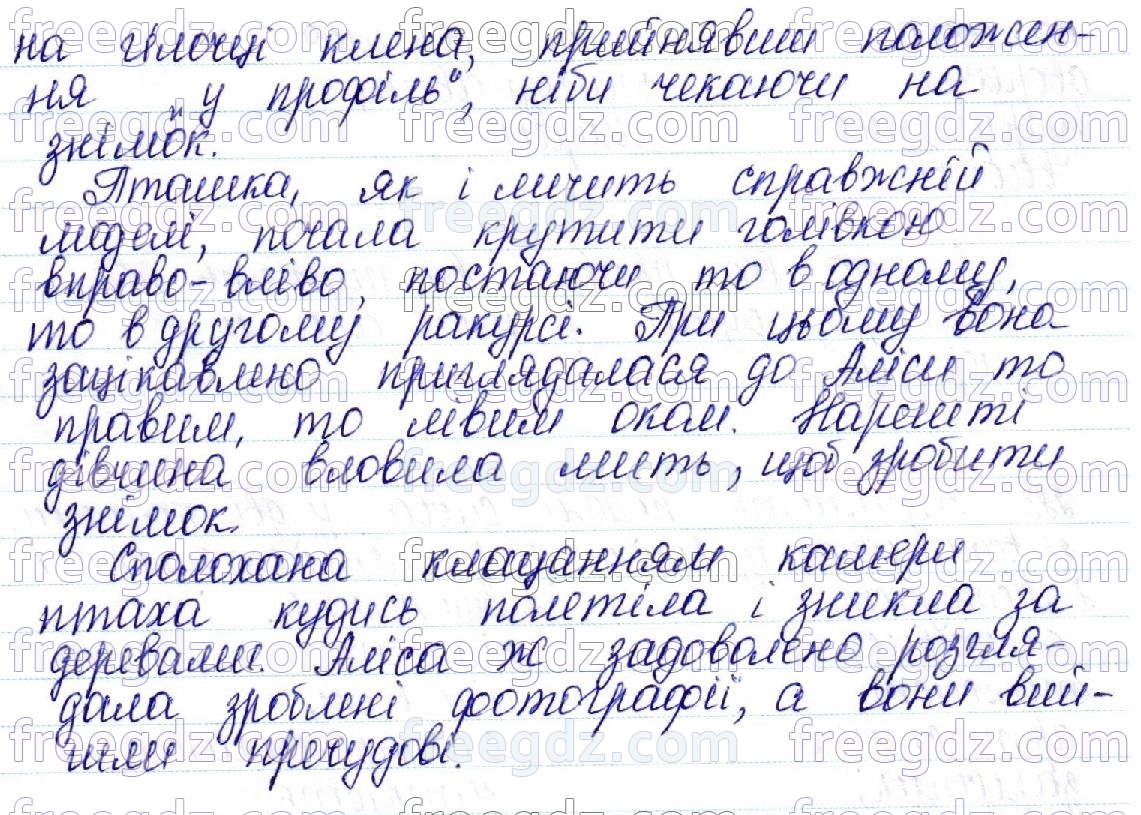 на гілочці клена, прийнявши положен-
ня „у профіль“, ніби чекаючи на
знімок.
Пташка, як і личить справжній
моделі, почала крутити голівкою
вправо-вліво, постаючи то в одному,
то в другому ракурсі. При цьому вона
зацікавлено приглядалася до Аліси то
правим, то лівим оком. Нарешті
дівчина вловила мить, щоб зробити
знімок.
Сполохана клацанням камери
птаха кудись полетіла і зникла за
деревами. Аліса ж задоволено розгля-
дала зроблені фотографії, а вони вий-
шли пречудові.